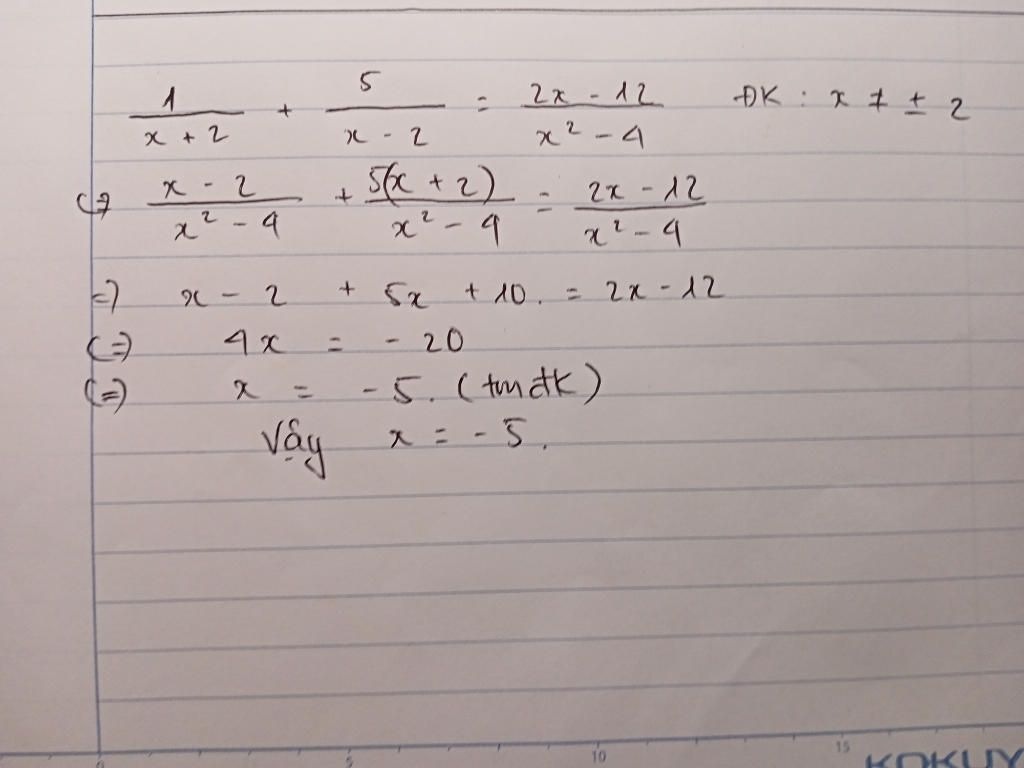 1/(x + 2) + 5/(x - 2) = (2x - 12)/(x² - 4) ĐK : x ≠ ± 2
(=) (x - 2)/(x² - 4) + 5(x + 2)/(x² - 4) = (2x - 12)/(x² - 4)
=) x - 2 + 5x + 10. = 2x - 12
(=) 4x = - 20
(=) x = - 5. (tmđk)
Vậy x = - 5.
0 5 10 15 KOKUY